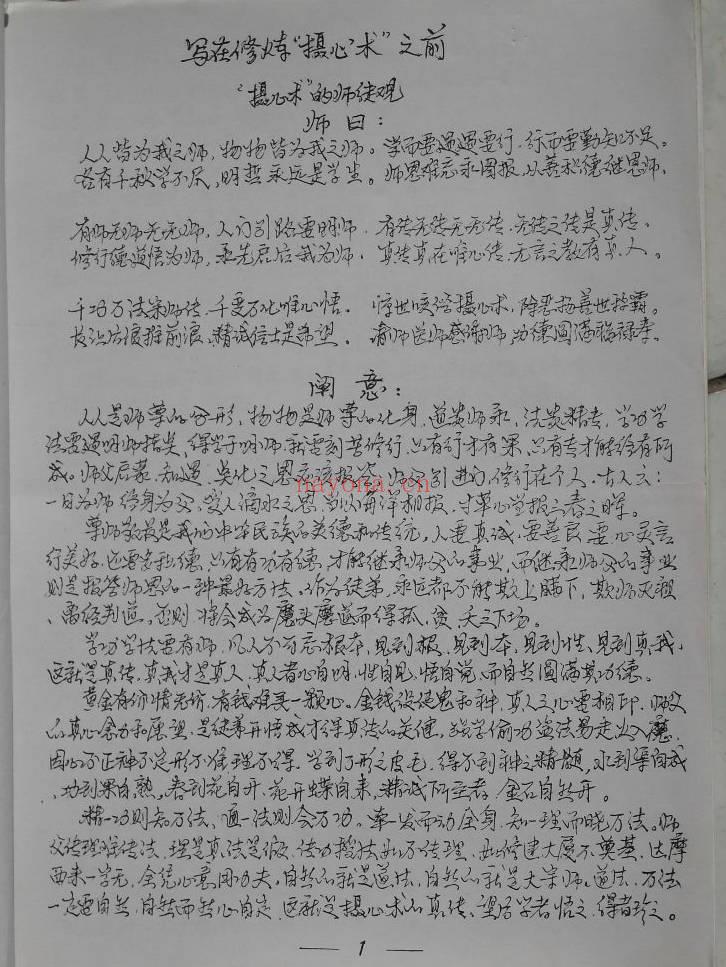 写在修炼“摄心术”之前
“摄心术”的师徒观
师曰：
人人皆为我之师，物物皆为我之师。学而要遇遇要行，行而要勤知不足。
各有千秋学不尽，明哲永远是学生。师恩难忘永图报，从善积德继恩师。
有师无师无无师，入门引路要明师，有法无法无无法，无法之法是真传。
修行德道悟为师，承先启后我为师，真传真在唯心传，无言之教有真人。
千功万法案师传，千变万化唯心悟。惊世咬俗摄心术，除恶扬善世称霸。
长江后浪推前浪，精诚信士是希望。请师学师谢师，功德圆满福禄寿。
阐意：
人人是师尊的分形，物物是师尊的化身，道贵师承，法贵精专，学功学
法要遇明师指点，得学于明师就要刻苦修行，只有行才有果，只有专才能终有所
成。师父启蒙、知遇、点化之恩应该报答，师父引进门，修行在个人，古人云：
一日为师终身为父，受人滴水之恩，当以海洋相报，寸草心学报三春之晖。
尊师敬长是我们中华民族的美德和传统，人要真诚，要善良，要心灵美
行美好，还要多积德，只有有功有德，才能继承师父的事业，而继承师父的事业
则是报答师恩的一种最好方法，作为徒弟，永远都不能欺上瞒下，欺师灭祖
、离经判道，否则，将会成为魔头魔道而得孤、贫、夭之下场。
学功学法要有师，凡人不可忘根本，见到根，见到本，见到性，见到真我，
这就是真传，真我才是真人，真人者心自明，性自见，悟自觉，而自然圆满其功德。
黄金有价情无价，有钱难买一颗心。金钱能使鬼和神，真人之心要相印，师父
的真心余力和愿望，是徒弟开悟成才得真法的关键，强学偷功盗法易走火入魔，
因心不正神不定形不准理不得，学到了形之皮毛，得不到神之精髓，水到渠自成
、功到果自熟，春到花自开，花开蝶自来，精诚所至者，金石自然开。
精一功则知万法，通一法则会万功，牵一发而动全身，知一理而晓万法。师
父传理难传法，理是真法是假，传功授技如不传理，如修建大厦不奠基，达摩
西来一字无，全凭心意用功夫，自然的就是道法，自然的就是大宗师，道法，万法
一定要自然，自然而然心自定，这就是摄心术的真传，望后学者悟之，得者珍之。
nayona.cn
1